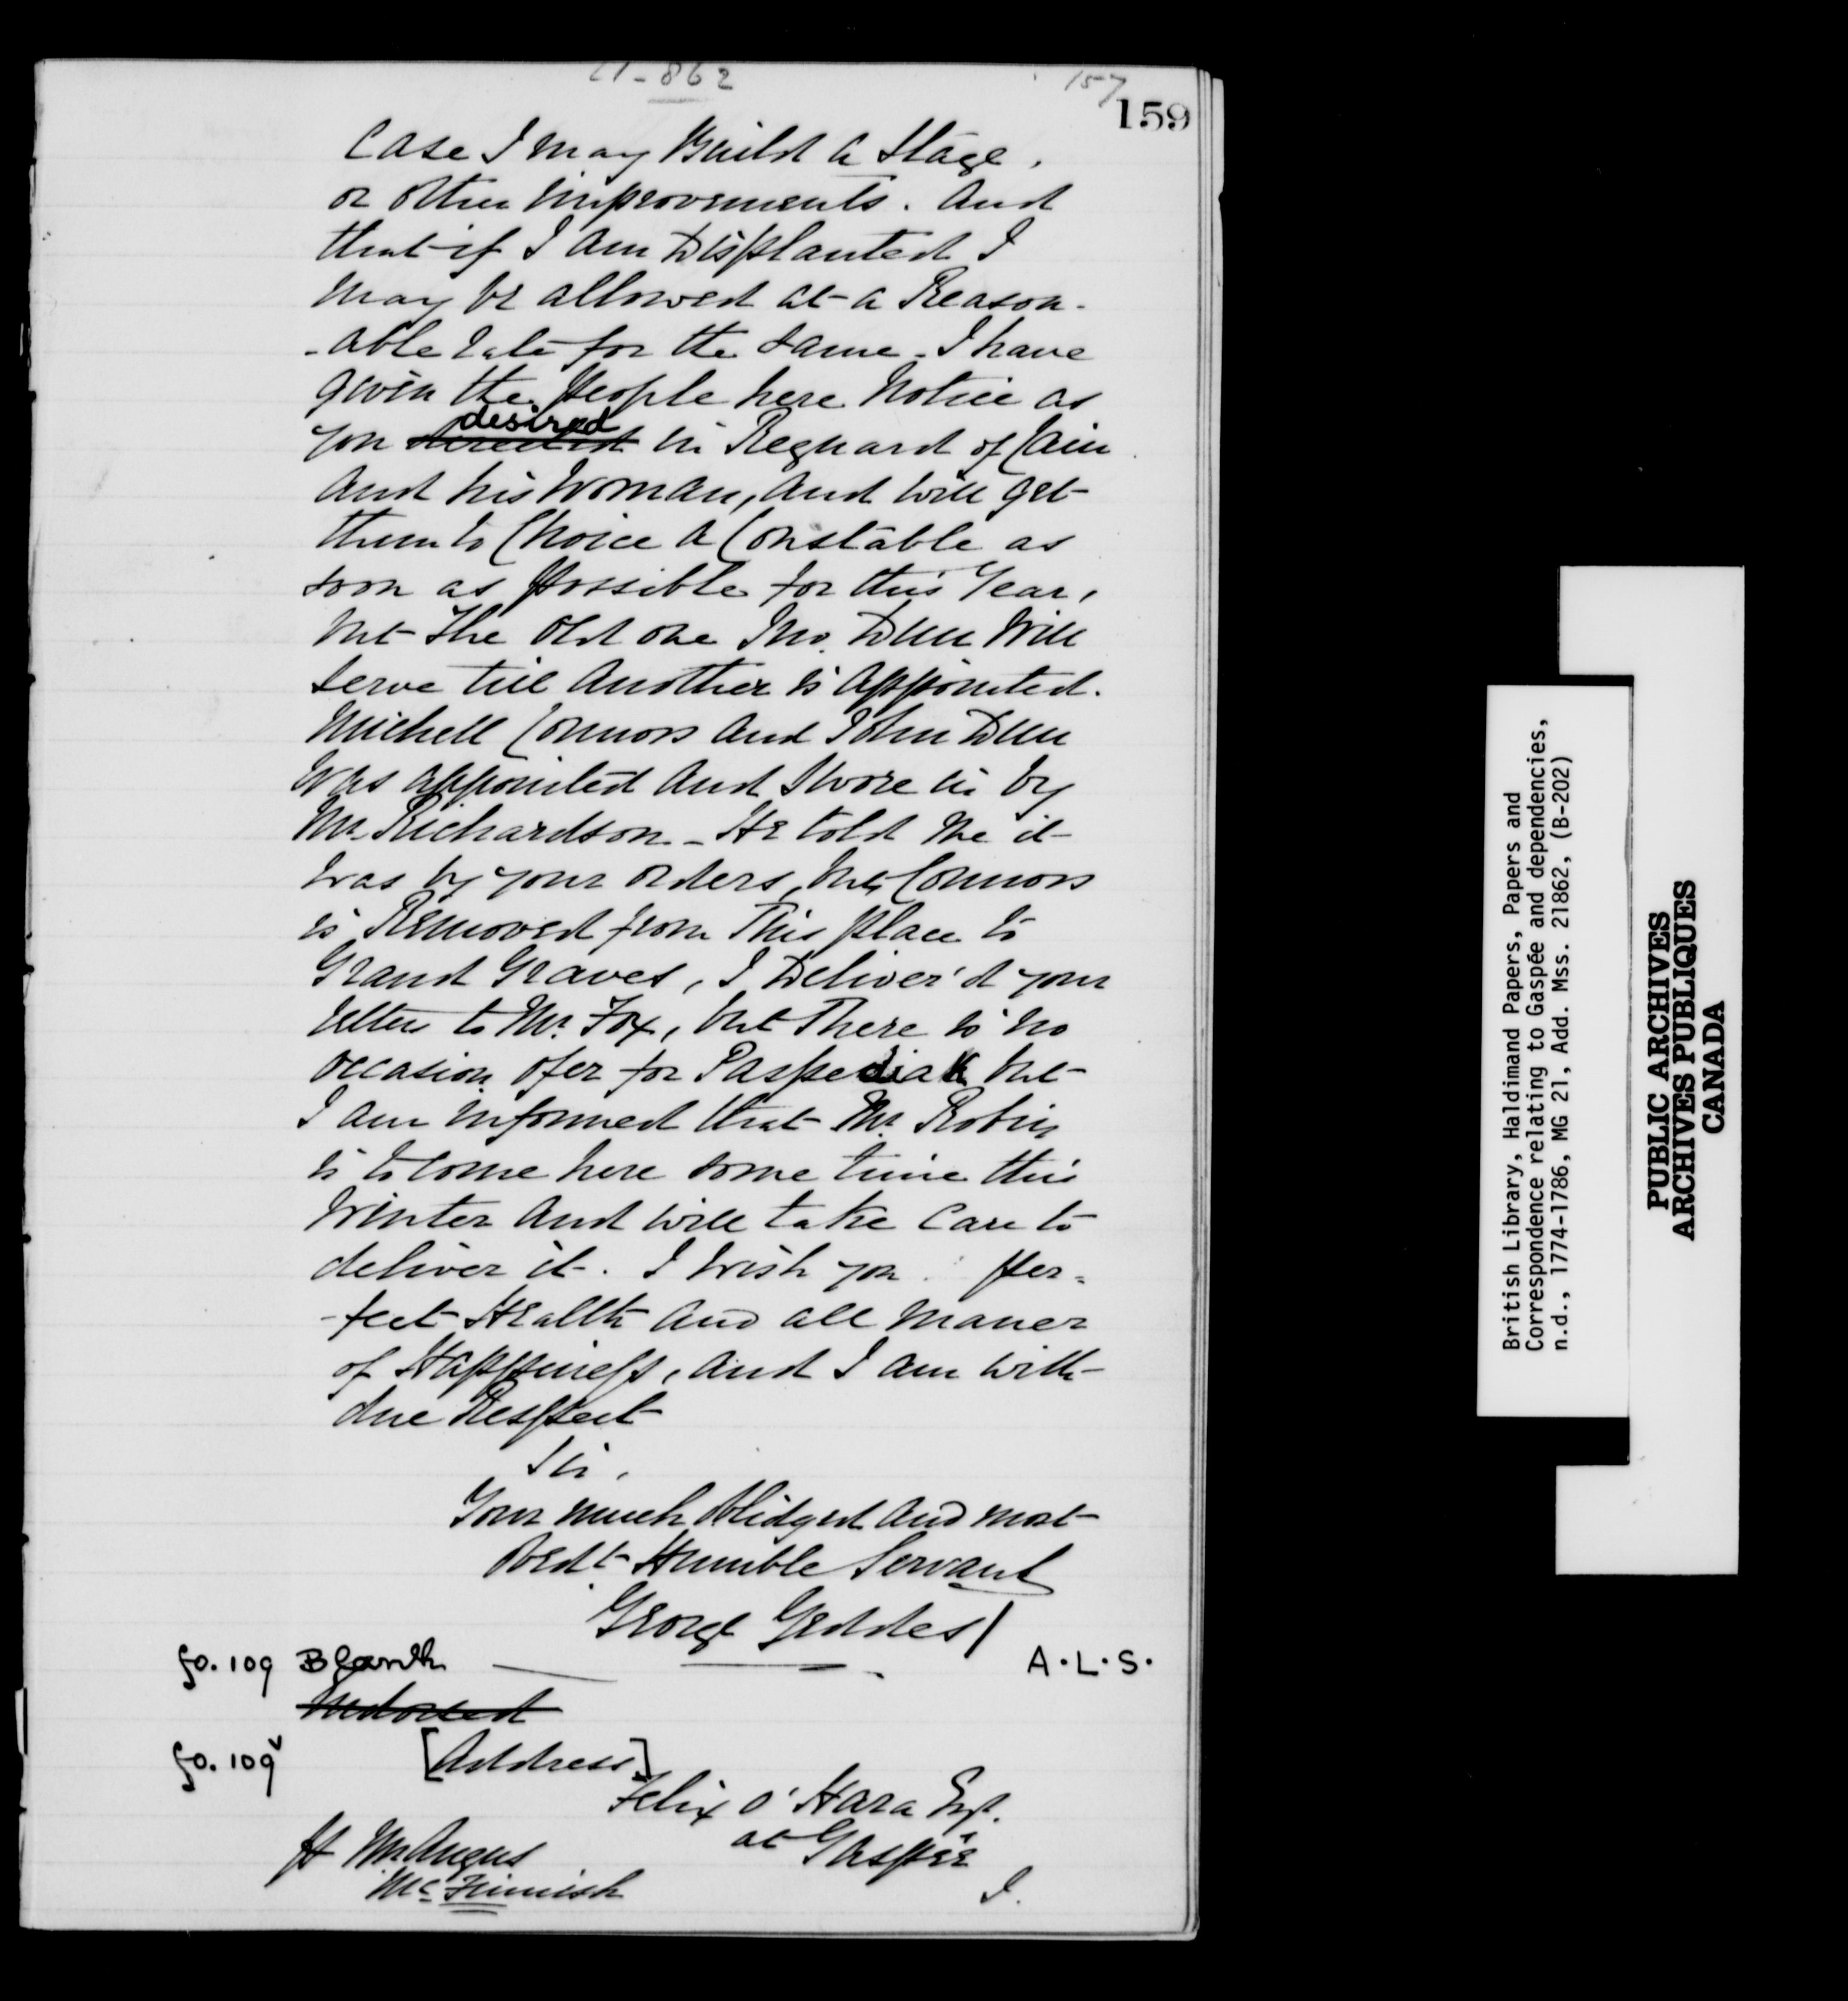 21-862
157
159
Case I may Build a Stage,
or other improvements. And
that if I am Displanted I
may be allowed at a Reason-
-able rate for the same - I have
given the people here Notice as
you desired in Reguard of Cain
And his Woman, And will get
them to Choice a Constable as
soon as possible for this Year,
but The old one Jno. Dun Will
serve till Another is Appointed.
Michell Connors And John Dun
was appointed And Swore in by
Mr. Richardson - He told Me it
was by your orders, but Connors
is Removed from This place to
Grand Graves, I Deliver'd your
letter to Mr. Fox, but There is no
occasion ofer for Paspediak but
I am informed that Mr. Robin
is to come here some time this
Winter And will take Care to
deliver it. I wish you per-
-fect Health And all Maner
of Happiness, And I am with
due Respect
Sir,
Your much Oblidged And most
Obedt. Humble Servant
George Geddes/
fo. 109 Blank
A.L.S.
Indorsed
fo. 109v [Address]
Felix O'Hara Esqr.
at Gaspée
pr Mr Angus
McFinnish
J.
British Library, Haldimand Papers, Papers and
Correspondence relating to Gaspée and dependencies,
n.d., 1774-1786, MG 21, Add. Mss. 21862, (B-202)
PUBLIC ARCHIVES
ARCHIVES PUBLIQUES
CANADA